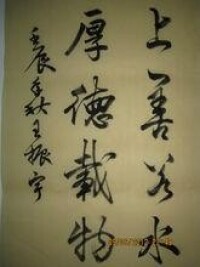 上善若水
厚德載物
壬辰年秋王振宇